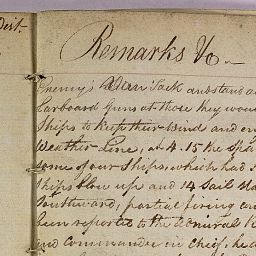 Dist.
Remarks &c.
Enemy's Van Tack and stand
Larboard Guns at those they wou
Ships to keep their Wind and en
Weather Line, at 4.15 the Spa
some of our Ships, which had
Ships blow up and 14 Sail
Southward, partial firing con
been reported to the Admiral
and commander in chief, he d